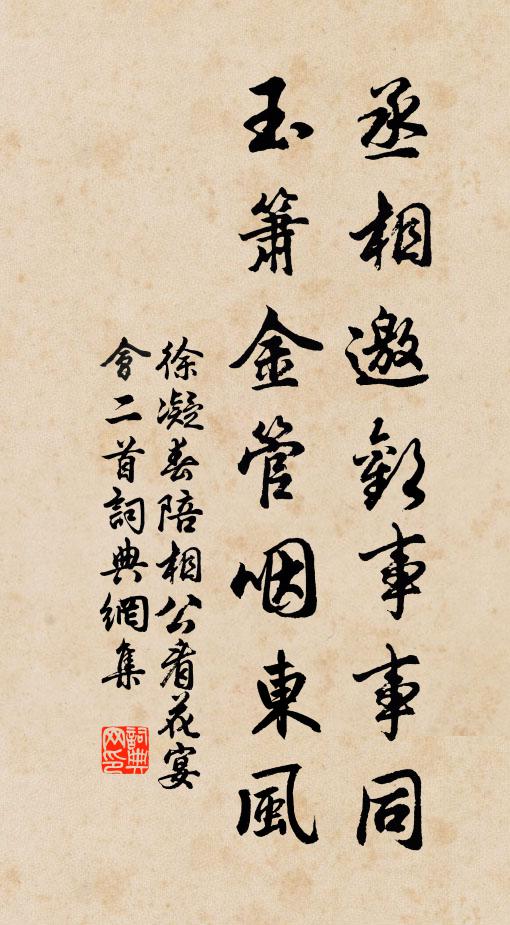 丞相邀歡事事同
玉簫金管咽東風
徐凝春陪相公看花宴
會二首詞典網集
詞典
網印